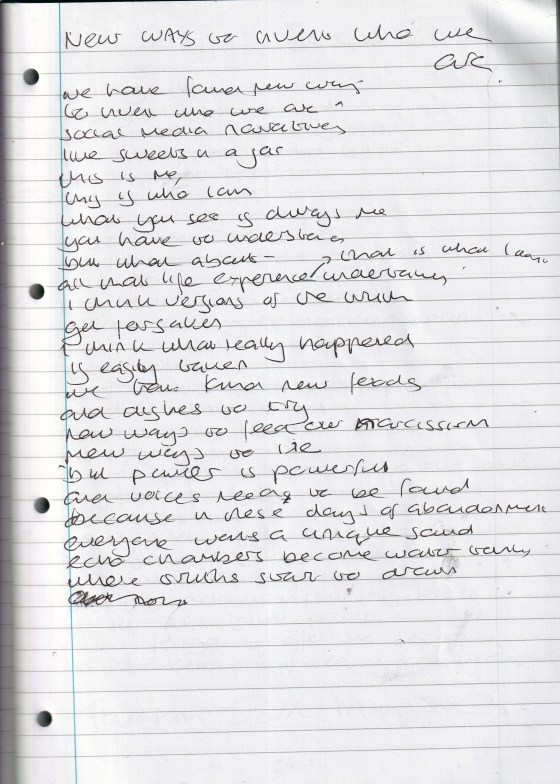 New ways to invent who we
are
we have found new ways
to invent who we are
social media narratives
like sweets in a jar
this is me,
this is who I am
what you see is always me
you have to understand
but what about - that is what I am
all that life experience undertaking
I think versions of the truth
get forsaken
I think what really happened
is easily taken
we have found new feeds
and dishes to try
new ways to feed our narcissism
new ways to lie
but power is powerful
and voices need to be found
because in these days of abandonment
everyone wants a unique sound
echo chambers become water tanks
where truths start to drown